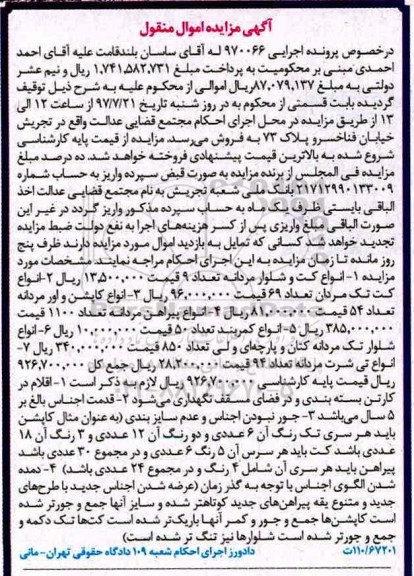 آگهی مزایده اموال منقول
درخصوص پرونده اجرایی ۹۷۰۰۶۶ لـه آقـای ساسان بلندقامت علیه آقای احمد
احمدی مبنی بر محکومیت به پرداخت مبلغ ۱,۷۴۱,۵۸۲,۷۳۱ ریال و نیم عشر
دولتی به مبلغ ۸۷,۰۷۹,۱۳۷ریال اموالی از محکوم علیه به شرح ذیل توقیف
گردیده بابت قسمتی از محکوم به در روز شنبه تاریخ ۹۷/۷/۲۱ از ساعت ۱۲ الی
۱۳ از طریق مزایده در محل اجرای احکام مجتمع قضایی عدالت واقع در تجریش
خیابان فناخسرو پلاک ۷۳ به فروش می‌رسد. مزایده از قیمت پایه کارشناسی
شروع شده به بالاترین قیمت پیشنهادی فروخته خواهد شد. ده درصد مبلغ
مزایده فی المجلس از برنده مزایده به صورت قبض سپرده واریز به حساب شماره
۲۱۷۱۲۹۹۰۱۳۳۰۰۹ بانک ملی شعبه تجریش به نام مجتمع قضایی عدالت اخذ
الباقی بایستی ظرف یک ماه به حساب سپرده مذکور واریز گردد در غیر این
صورت الباقی مبلغ واریزی پس از کسر هزینه‌های اجرا به نفع دولت ضبط مزایده
تجدید خواهد شد کسانی که تمایل به بازدید اموال مورد مزایده دارند ظرف پنج
روز مانده تا زمان مزایده به این اجرای احکام مراجعه نمایند. مشخصات مورد
مزایده ۱- انواع کت و شلوار مردانه تعداد ۹ قیمت ۱۳,۵۰۰,۰۰۰ ریال ۲-انواع
کت تک مردان تعداد ۶۹ قیمت ۹۶,۰۰۰,۰۰۰ ریال ۳- انواع کاپشن و اور مردانه
تعداد ۵۴ قیمت ۸۱,۰۰۰,۰۰۰ ریال ۴- انواع پیراهن مردانه تعداد ۱۱۰۰ قیمت
۳۸۵,۰۰۰,۰۰۰ ریال ۵- انواع کمربند تعداد ۵۰ قیمت ۱۰,۰۰۰,۰۰۰ ریال ۶- انواع
شلوار تک مردانه کتان و پارچه‌ای و لی تعداد ۸۵۰ قیمت ۳۴۰,۰۰۰,۰۰۰ ریال ۷-
انواع تی شرت مردانه تعداد ۹۴ قیمت ۲۸,۲۰۰,۰۰۰ ریال جمع کل ۹۲۶,۷۰۰,۰۰۰
ریال قیمت پایه کارشناسی ریال لازم به ذکر است ۱- اقلام در
کارتن بسته بندی و در فضای مسقف نگهداری می‌شود ۲- قدمت اجناس بالغ بر
۵ سال می‌باشد ۳- جور نبودن اجناس و عدم سایز بندی (به عنوان مثال کاپشن
باید هر سری تک رنگ آن ۶ عددی و دو رنگ آن ۱۲ عددی و ۳ رنگ آن ۱۸
عددی باشد کت باید هر سرس آن ۵ رنگ ۶ عددی و در مجموع ۳۰ عددی باشد
پیراهن باید هر سری آن شامل ۴ رنگ و در مجموع ۲۴ عددی باشد) ۴- دمده
شدن الگوی اجناس با توجه به گذر زمان (عرضه شدن اجناس جدید با طرح‌های
جدید و متنوع یقه پیراهن‌های جدید کوتاهتر شده و سایز آنها جمع و جورتر شده
است کاپشن‌ها جمع و جور و کمر آنها باریک‌تر شده است کت‌ها تک دکمه و
جمع و جورتر شده است شلوارها نیز تنگ تر شده است)
۱۱۰/۶۷۲۰۱ت دادورز اجرای احکام شعبه ۱۰۹ دادگاه حقوقی تهران- مانی